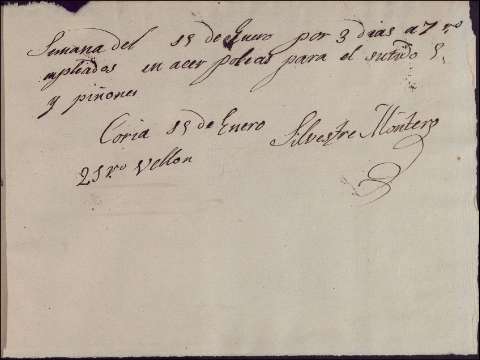 Semana del 15 de Enero por 3 dias a 7 rˢ
empleados en acer poleas para el surtido
y piñones
Coria 15 de Enero
Silvestre Montero
21 rˢ vellon